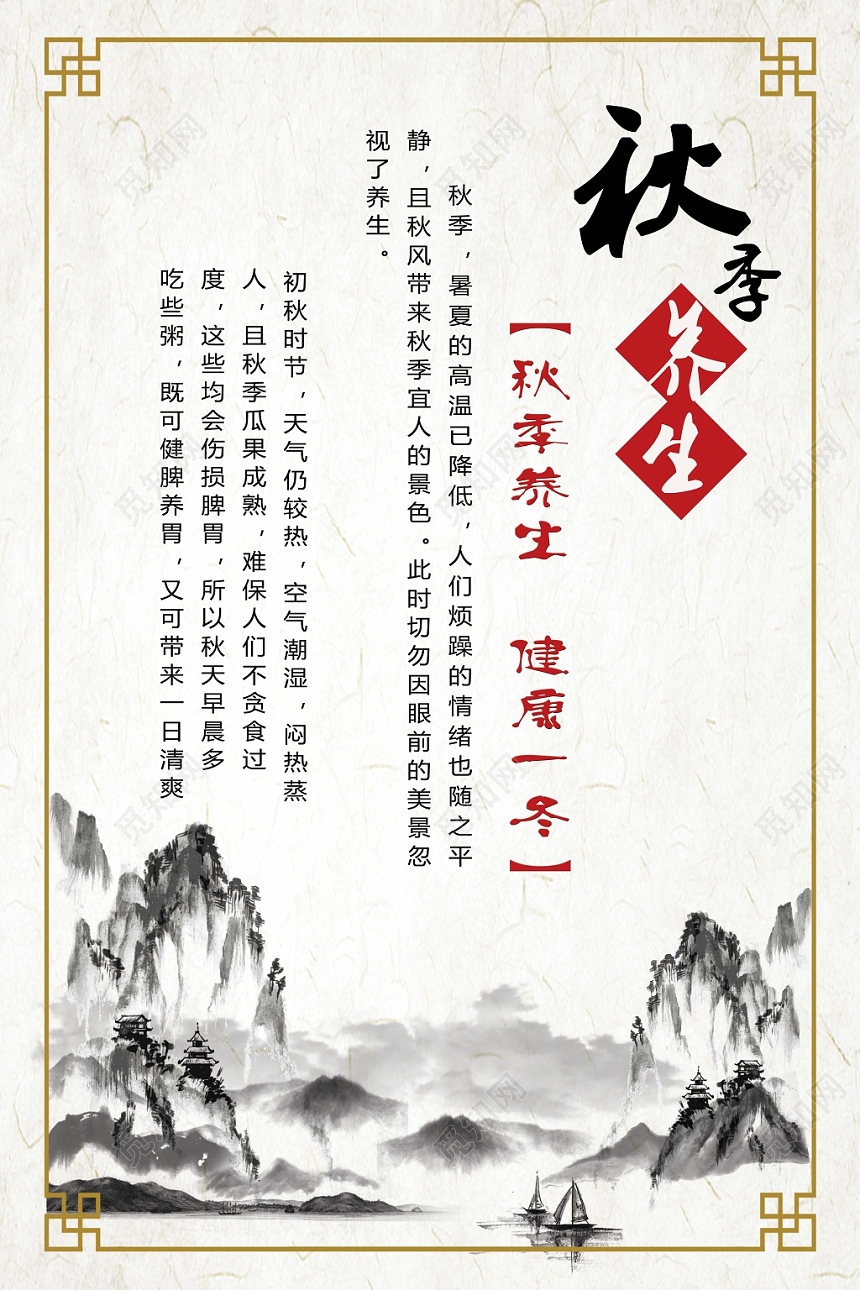 秋季
养生
【秋季养生 健康一冬】
秋季，暑夏的高温已降低，人们烦躁的情绪也随之平
静，且秋风带来秋季宜人的景色。此时切勿因眼前的美景忽
视了养生。
初秋时节，天气仍较热，空气潮湿，闷热蒸
人，且秋季瓜果成熟，难保人们不贪食过
度，这些均会伤损脾胃，所以秋天早晨多
吃些粥，既可健脾养胃，又可带来一日清爽
觅知网